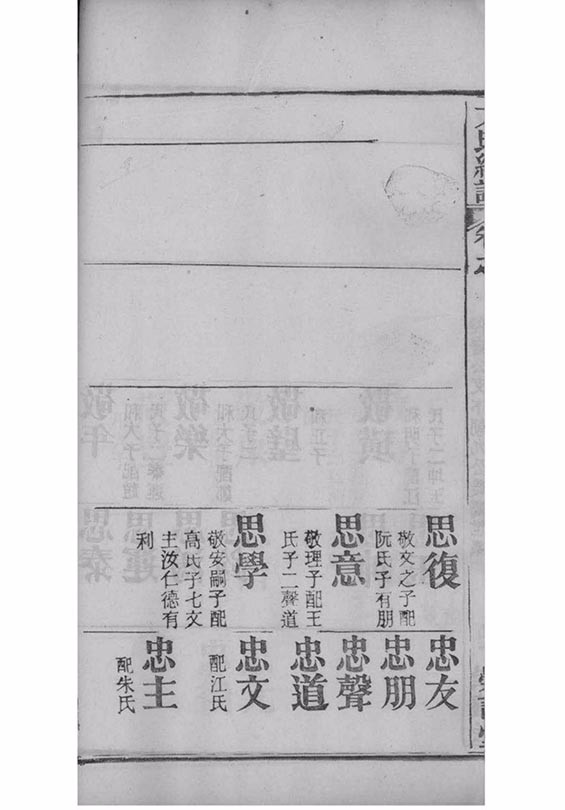 思復
敬文之子配
阮氏子有朋
思意
敬理子配王
氏子二聲道
思學
敬安嗣子配
高氏子七文
主汝仁德有
利
忠友
忠朋
忠聲
忠道
忠文
配江氏
忠主
配朱氏